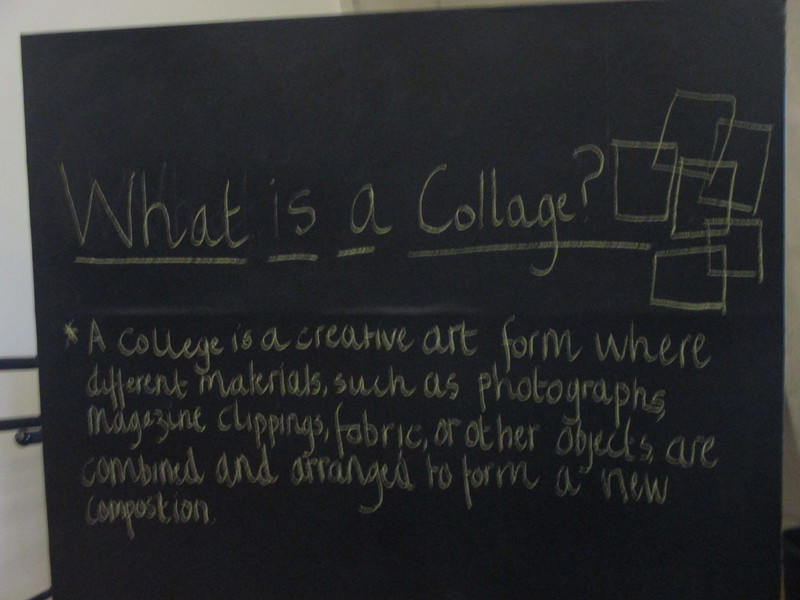 What is a Collage?
* A college is a creative art form where
different materials, such as photographs,
magezine clippings, fabric, or other objects, are
combined and arranged to form a new
compostion.